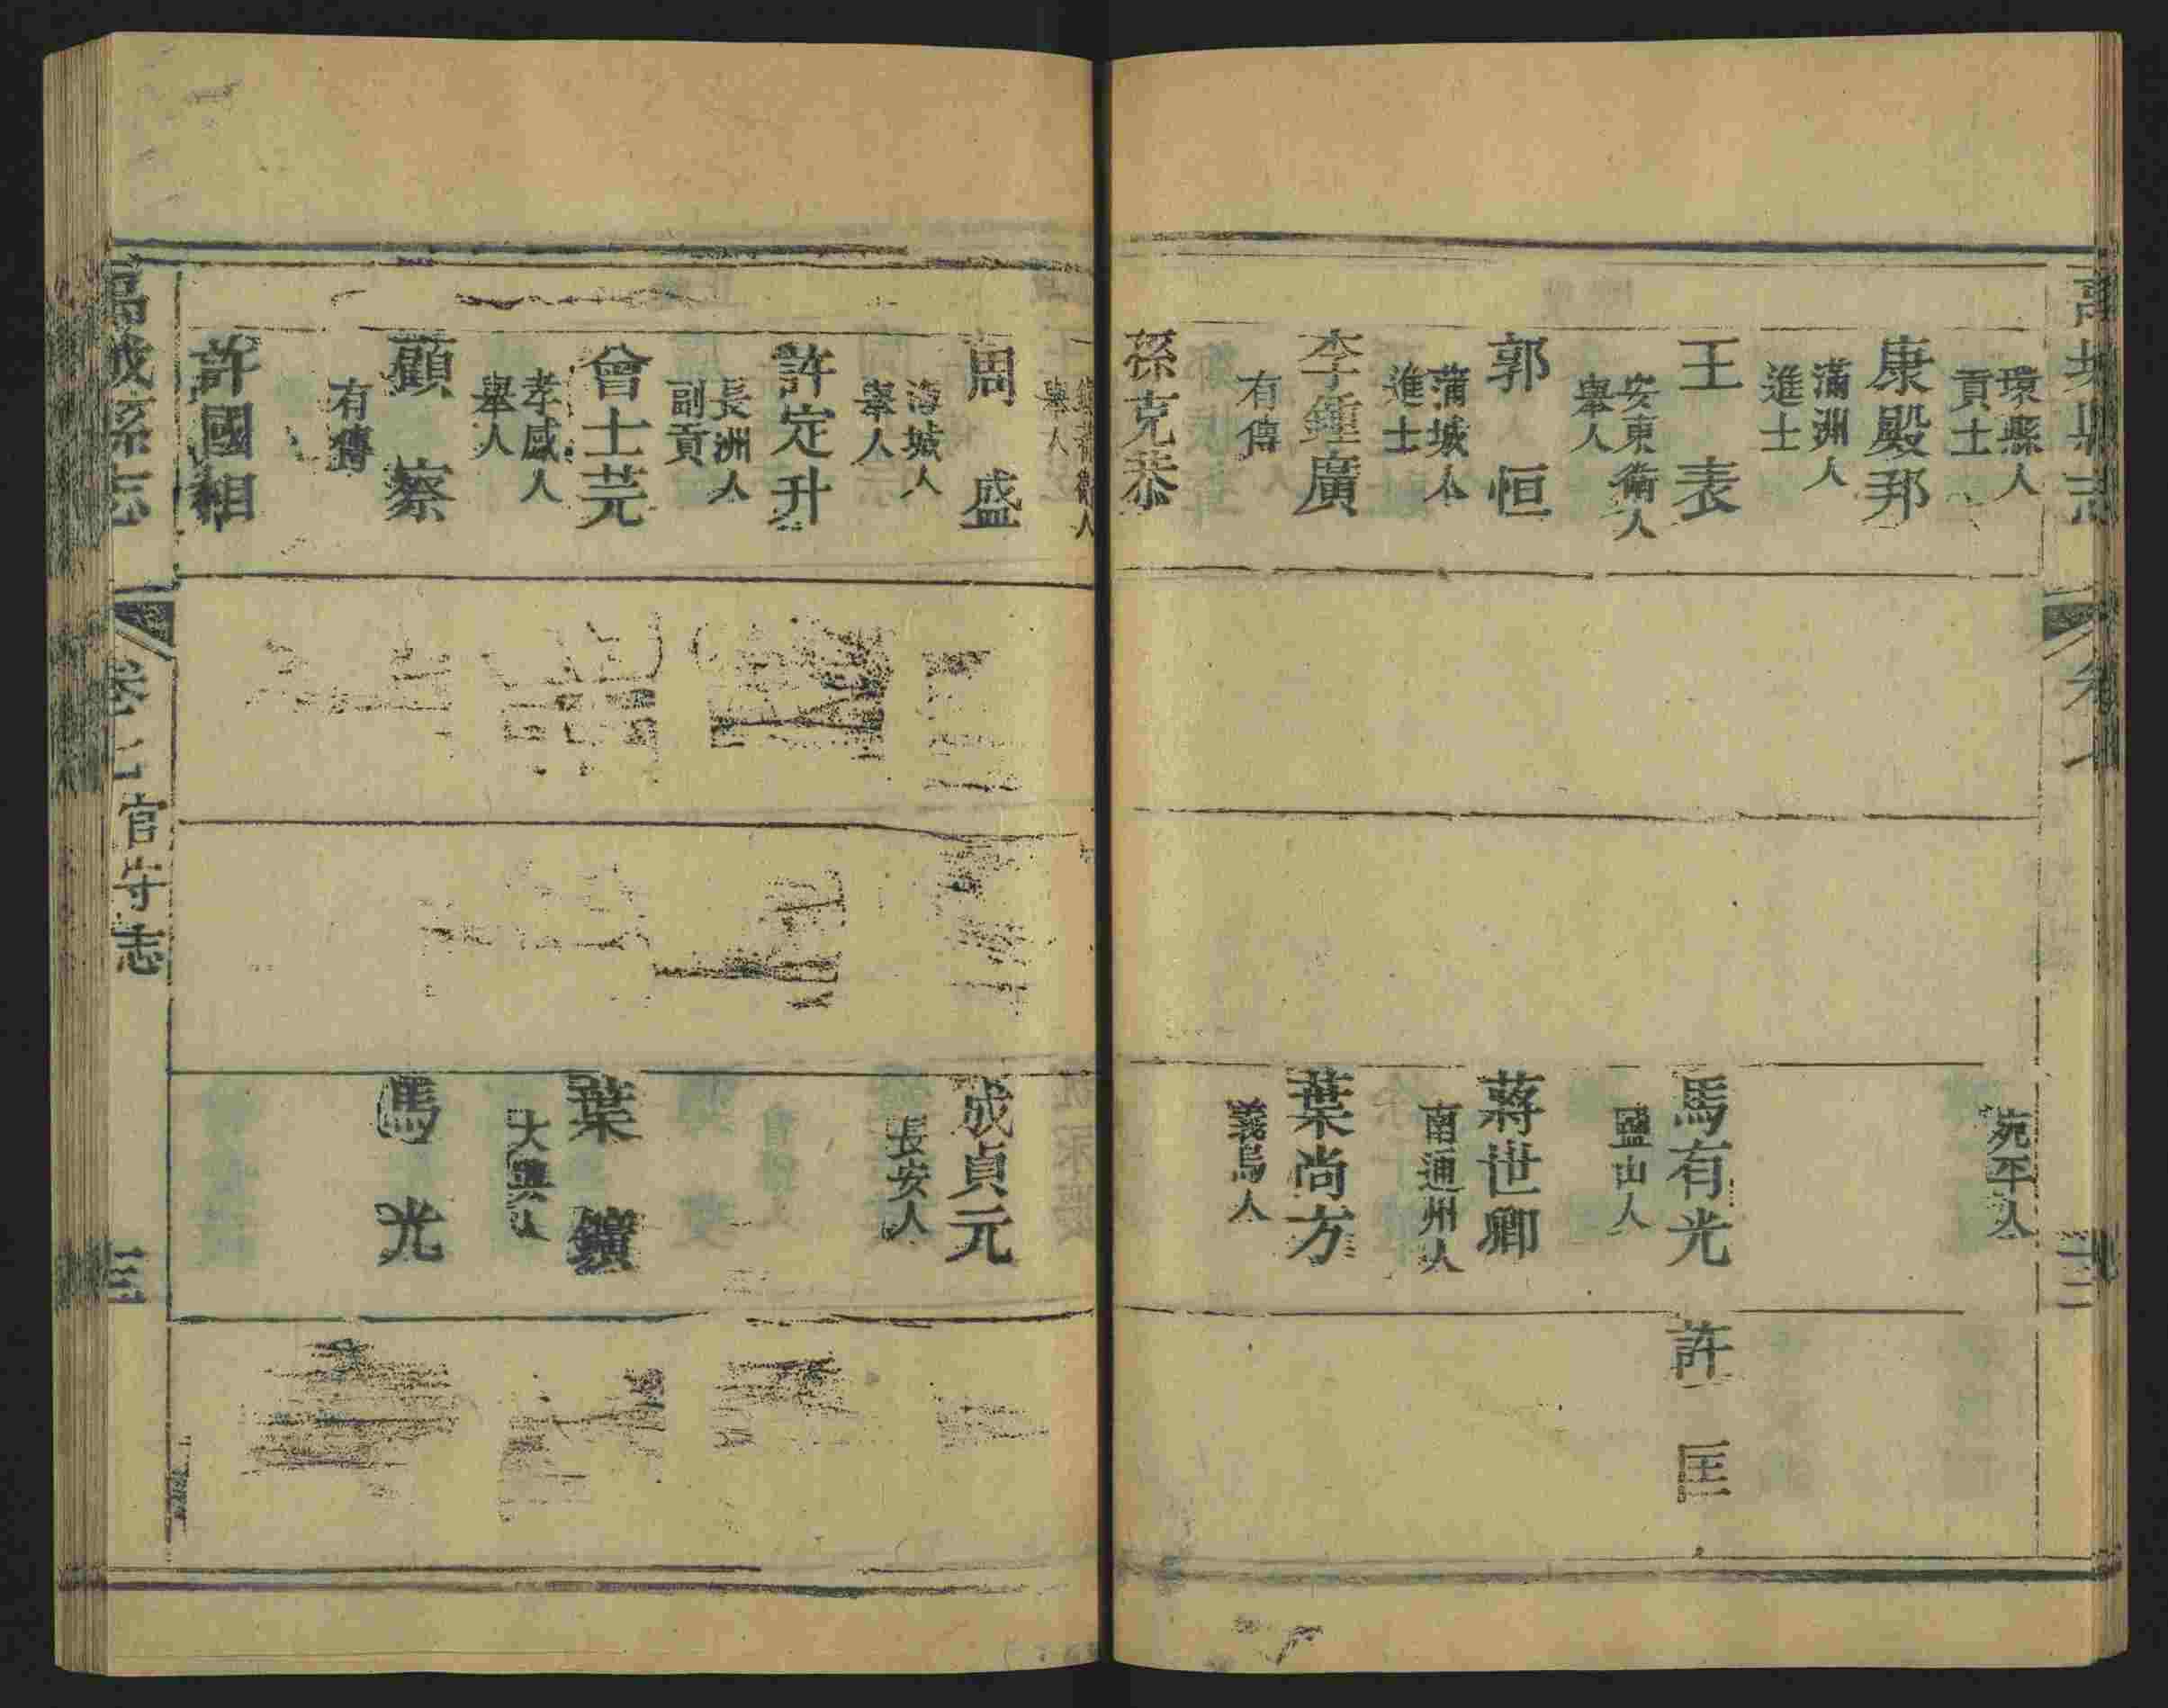 環縣人
貢士
康殿邦
滿洲人
進士
王表
安東衛人
舉人
郭恒
蒲城人
進士
李鍾廣
有傳
孫克恭
宛平人
馬有光
盬山人
蔣世卿
南通州人
葉尚方
義烏人
許匡
衛人
舉人
周盛
海城人
舉人
許定升
長洲人
副貢
曾士芫
孝感人
舉人
顧 察
有傳
許國相
成貞元
長安人
葉鑛
大興人
馬光
縣志
卷七
官守志